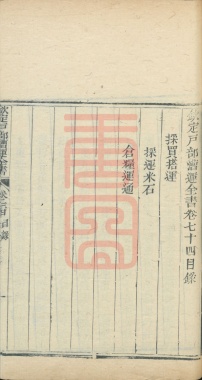 欽定戶部漕運全書卷七十四目錄
採買搭運
採運米石
倉糧運通
欽定戶部漕運全書
目錄